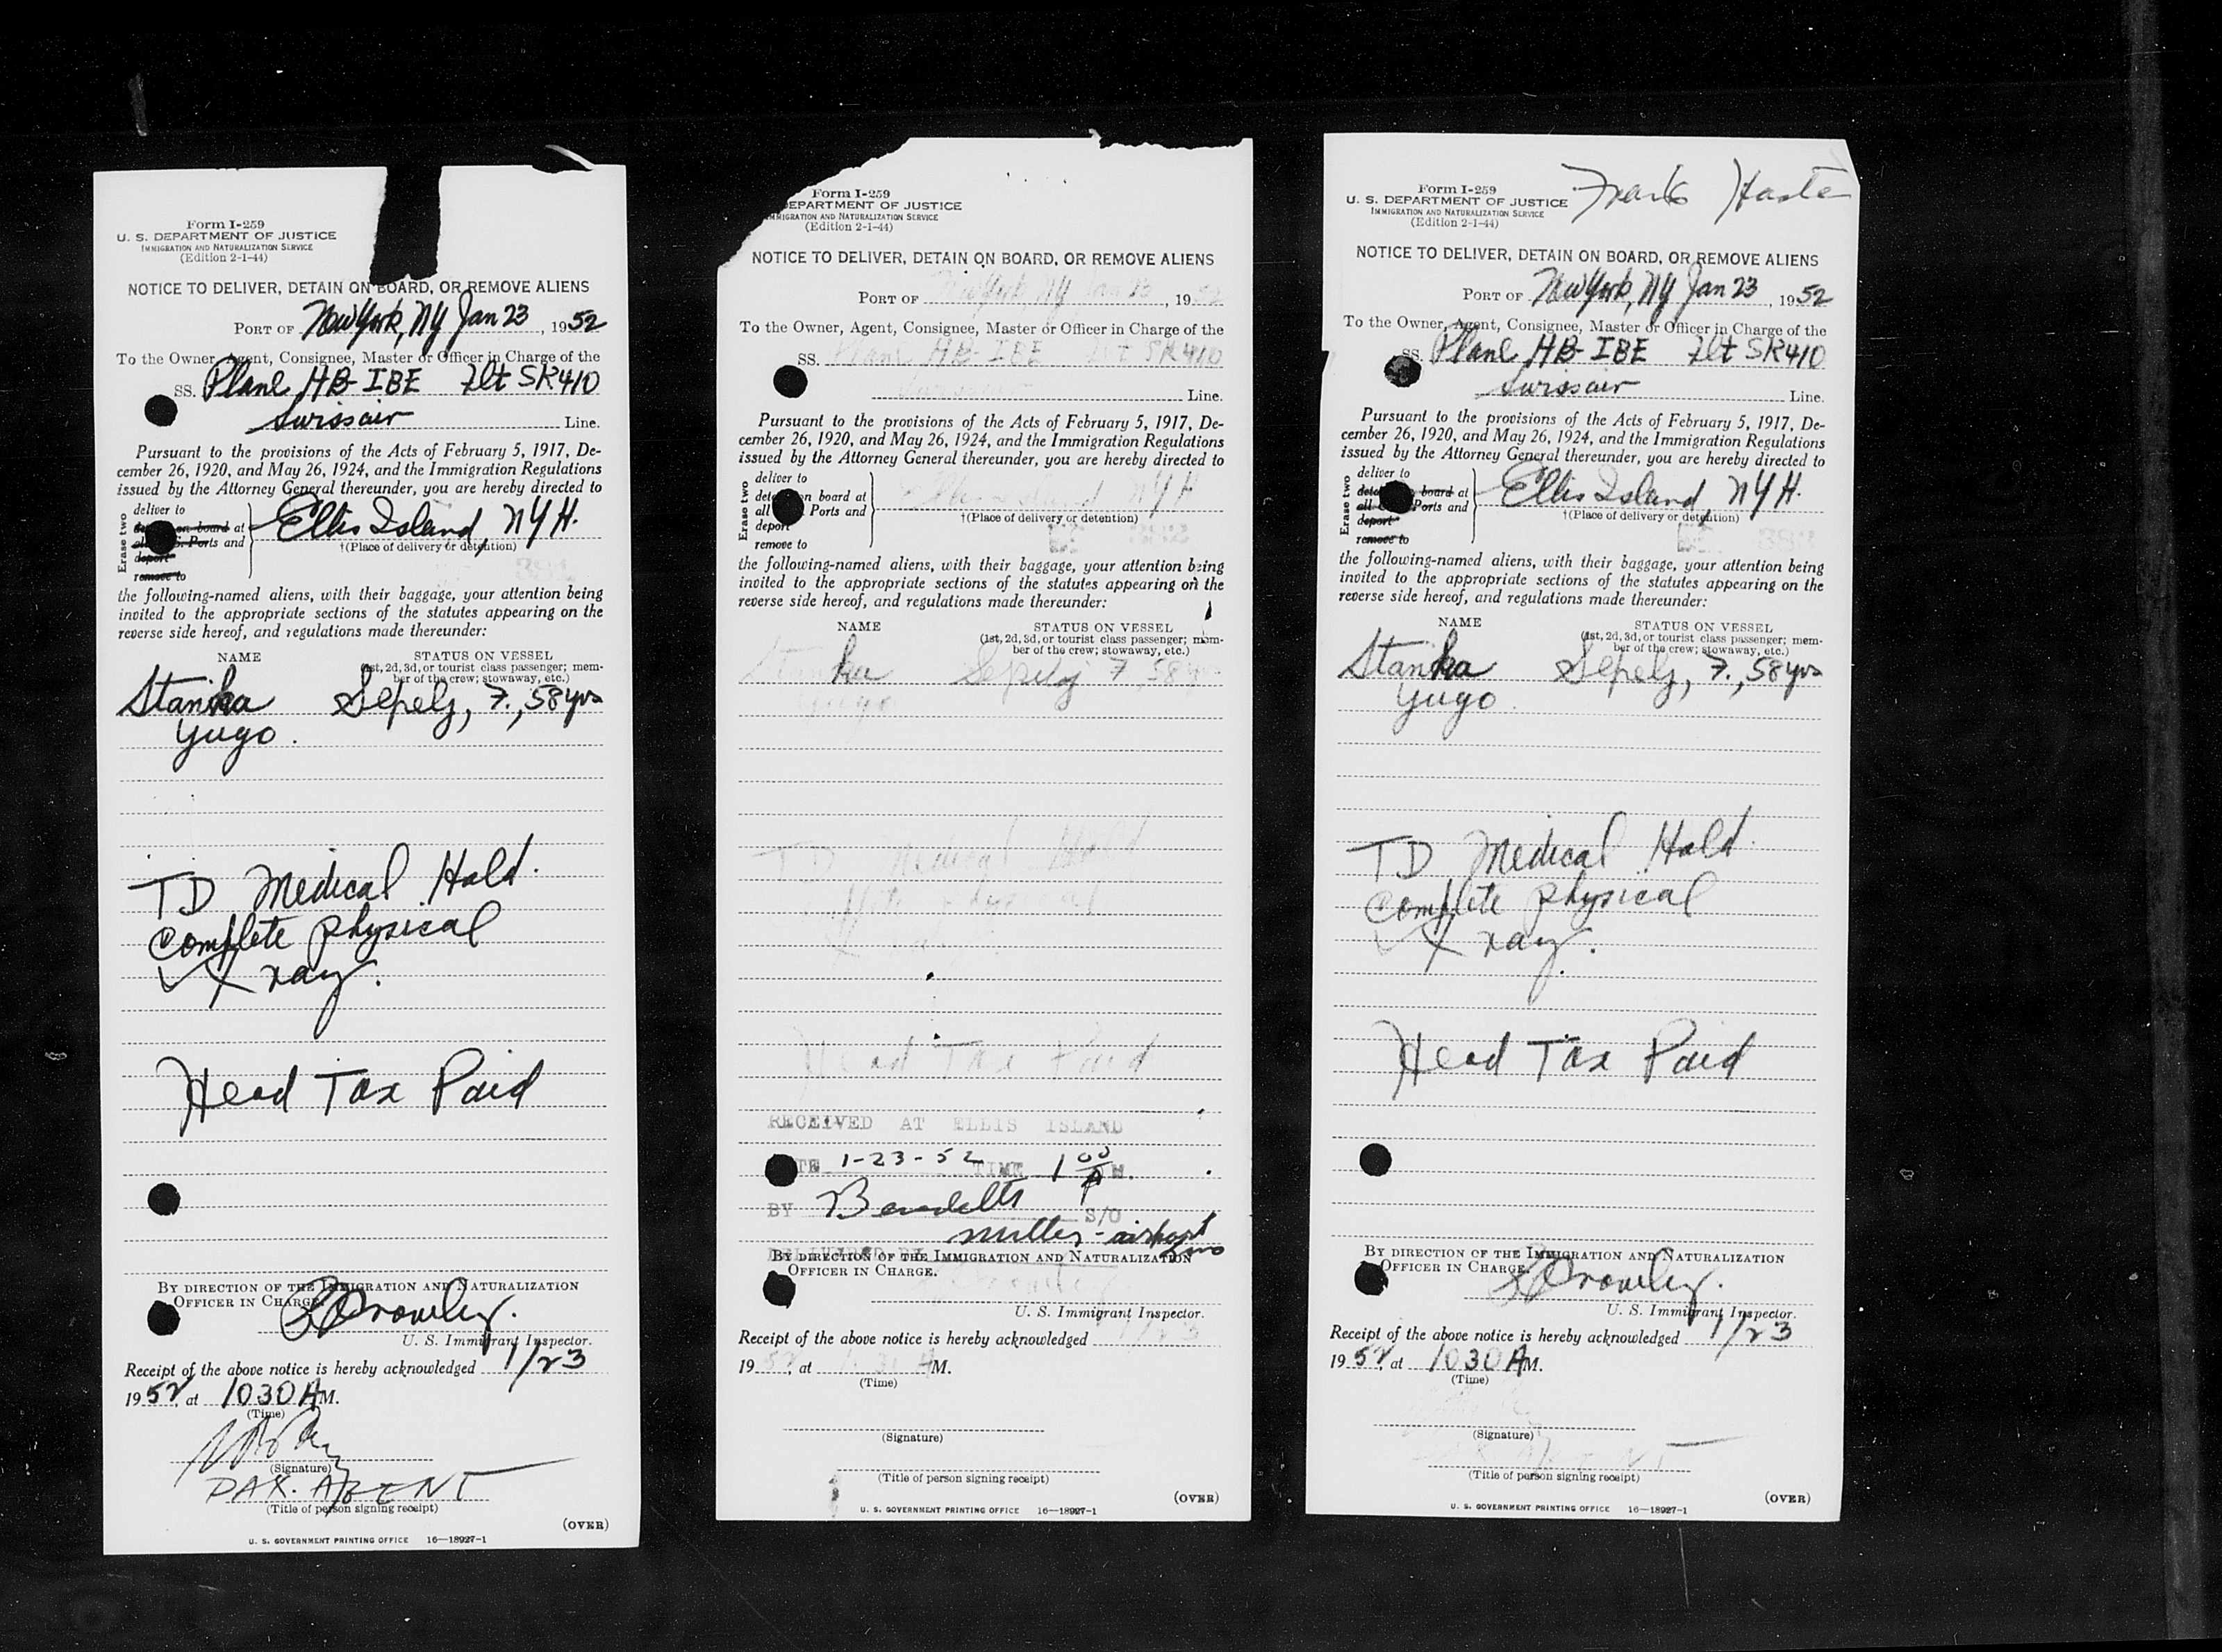 Form I-259
U. S. DEPARTMENT OF JUSTICE
IMMIGRATION AND NATURALIZATION SERVICE
(Edition 2-1-44)
NOTICE TO DELIVER, DETAIN ON BOARD, OR REMOVE ALIENS
PORT OF New York, NY Jan 23, 1952
To the Owner, Agent, Consignee, Master or Officer in Charge of the
SS. Plane HB-IBE Flt SR410
Swissair Line.
Pursuant to the provisions of the Acts of February 5, 1917, De-
cember 26, 1920, and May 26, 1924, and the Immigration Regulations
issued by the Attorney General thereunder, you are hereby directed to
Erase two
deliver to
on board at
Ports and
deport
remove to
Ellis Island, NYH.
†(Place of delivery or detention)
the following-named aliens, with their baggage, your attention being
invited to the appropriate sections of the statutes appearing on the
reverse side hereof, and regulations made thereunder:
NAME STATUS ON VESSEL
(1st, 2d, 3d, or tourist class passenger; mem-
ber of the crew; stowaway, etc.)
Stanka Sepelj, F., 58 yrs
Yugo.
TD Medical Hold.
Complete physical
X ray.
Head Tax Paid
BY DIRECTION OF THE IMMIGRATION AND NATURALIZATION
OFFICER IN CHARGE.
Crowley.
U. S. Immigrant Inspector.
Receipt of the above notice is hereby acknowledged 1/23
1952, at 1030 AM.
(Time)
(Signature)
PAX. AGENT
(Title of person signing receipt)
(OVER)
U. S. GOVERNMENT PRINTING OFFICE 16—18927-1
Form I-259
EPARTMENT OF JUSTICE
MIGRATION AND NATURALIZATION SERVICE
(Edition 2-1-44)
NOTICE TO DELIVER, DETAIN ON BOARD, OR REMOVE ALIENS
PORT OF New York NY Jan 23, 1952
To the Owner, Agent, Consignee, Master or Officer in Charge of the
SS. Plane HB-IBE Flt SR410
Swissair Line.
Pursuant to the provisions of the Acts of February 5, 1917, De-
cember 26, 1920, and May 26, 1924, and the Immigration Regulations
issued by the Attorney General thereunder, you are hereby directed to
Erase two
deliver to
on board at
all Ports and
deport
remove to
Ellis Island, NYH
†(Place of delivery or detention)
the following-named aliens, with their baggage, your attention being
invited to the appropriate sections of the statutes appearing on the
reverse side hereof, and regulations made thereunder:
NAME STATUS ON VESSEL
(1st, 2d, 3d, or tourist class passenger; mem-
ber of the crew; stowaway, etc.)
Stanka Sepelj F, 58 yrs
Yugo
TD Medical Hold
Complete physical
X ray.
Head Tax Paid
RECEIVED AT ELLIS ISLAND
TE 1-23-52 TIME 1 00 P M.
BY S/O
DELIVERED BY
BY DIRECTION OF THE IMMIGRATION AND NATURALIZATION
OFFICER IN CHARGE.
Crowley
U. S. Immigrant Inspector.
Receipt of the above notice is hereby acknowledged 1/23
1952, at 1030 AM.
(Time)
(Signature)
(Title of person signing receipt)
(OVER)
U. S. GOVERNMENT PRINTING OFFICE 16—18927-1
Form I-259
U. S. DEPARTMENT OF JUSTICE
IMMIGRATION AND NATURALIZATION SERVICE
(Edition 2-1-44)
Frank
NOTICE TO DELIVER, DETAIN ON BOARD, OR REMOVE ALIENS
PORT OF New York, NY Jan 23, 1952
To the Owner, Agent, Consignee, Master or Officer in Charge of the
SS. Plane HB-IBE Flt SR410
Swissair Line.
Pursuant to the provisions of the Acts of February 5, 1917, De-
cember 26, 1920, and May 26, 1924, and the Immigration Regulations
issued by the Attorney General thereunder, you are hereby directed to
Erase two
deliver to
board at
all Ports and
deport
remove to
Ellis Island, NYH.
†(Place of delivery or detention)
the following-named aliens, with their baggage, your attention being
invited to the appropriate sections of the statutes appearing on the
reverse side hereof, and regulations made thereunder:
NAME STATUS ON VESSEL
(1st, 2d, 3d, or tourist class passenger; mem-
ber of the crew; stowaway, etc.)
Stanka Sepelj, F., 58 yrs
Yugo.
TD Medical Hold.
Complete physical
X ray.
Head Tax Paid
BY DIRECTION OF THE IMMIGRATION AND NATURALIZATION
OFFICER IN CHARGE.
Crowley.
U. S. Immigrant Inspector.
Receipt of the above notice is hereby acknowledged 1/23
1952, at 1030 AM.
(Time)
(Signature)
(Title of person signing receipt)
(OVER)
U. S. GOVERNMENT PRINTING OFFICE 16—18927-1